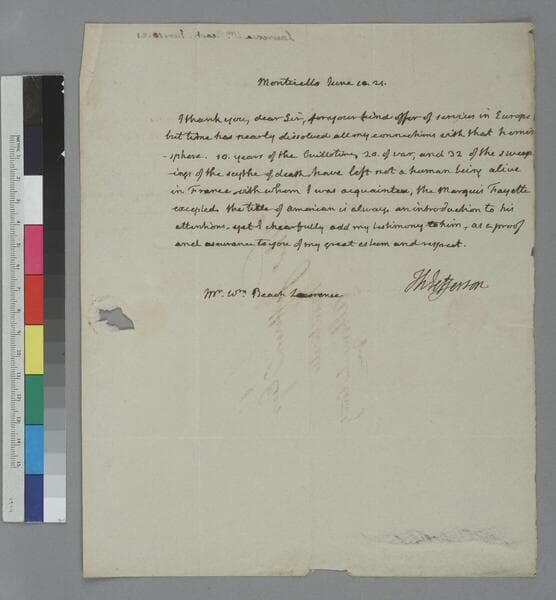 Monticello June 10. 21.
I thank you, dear Sir, for your kind offer of services in Europe
but time has nearly dissolved all my connections with that hemi
-sphere. 10 years of the Guillotine, 20. of war, and 32 of the sweep
ings of the scythe of death have left not a human being alive
in France with whom I was acquainted, the Marquis Fayette
excepted. the title of American is always an introduction to his
attentions. yet I chearfully add my testimony to him, as a proof
and assurance to you of my great esteem and respect.
Th: Jefferson
Mr. Wm Beach Lawrence